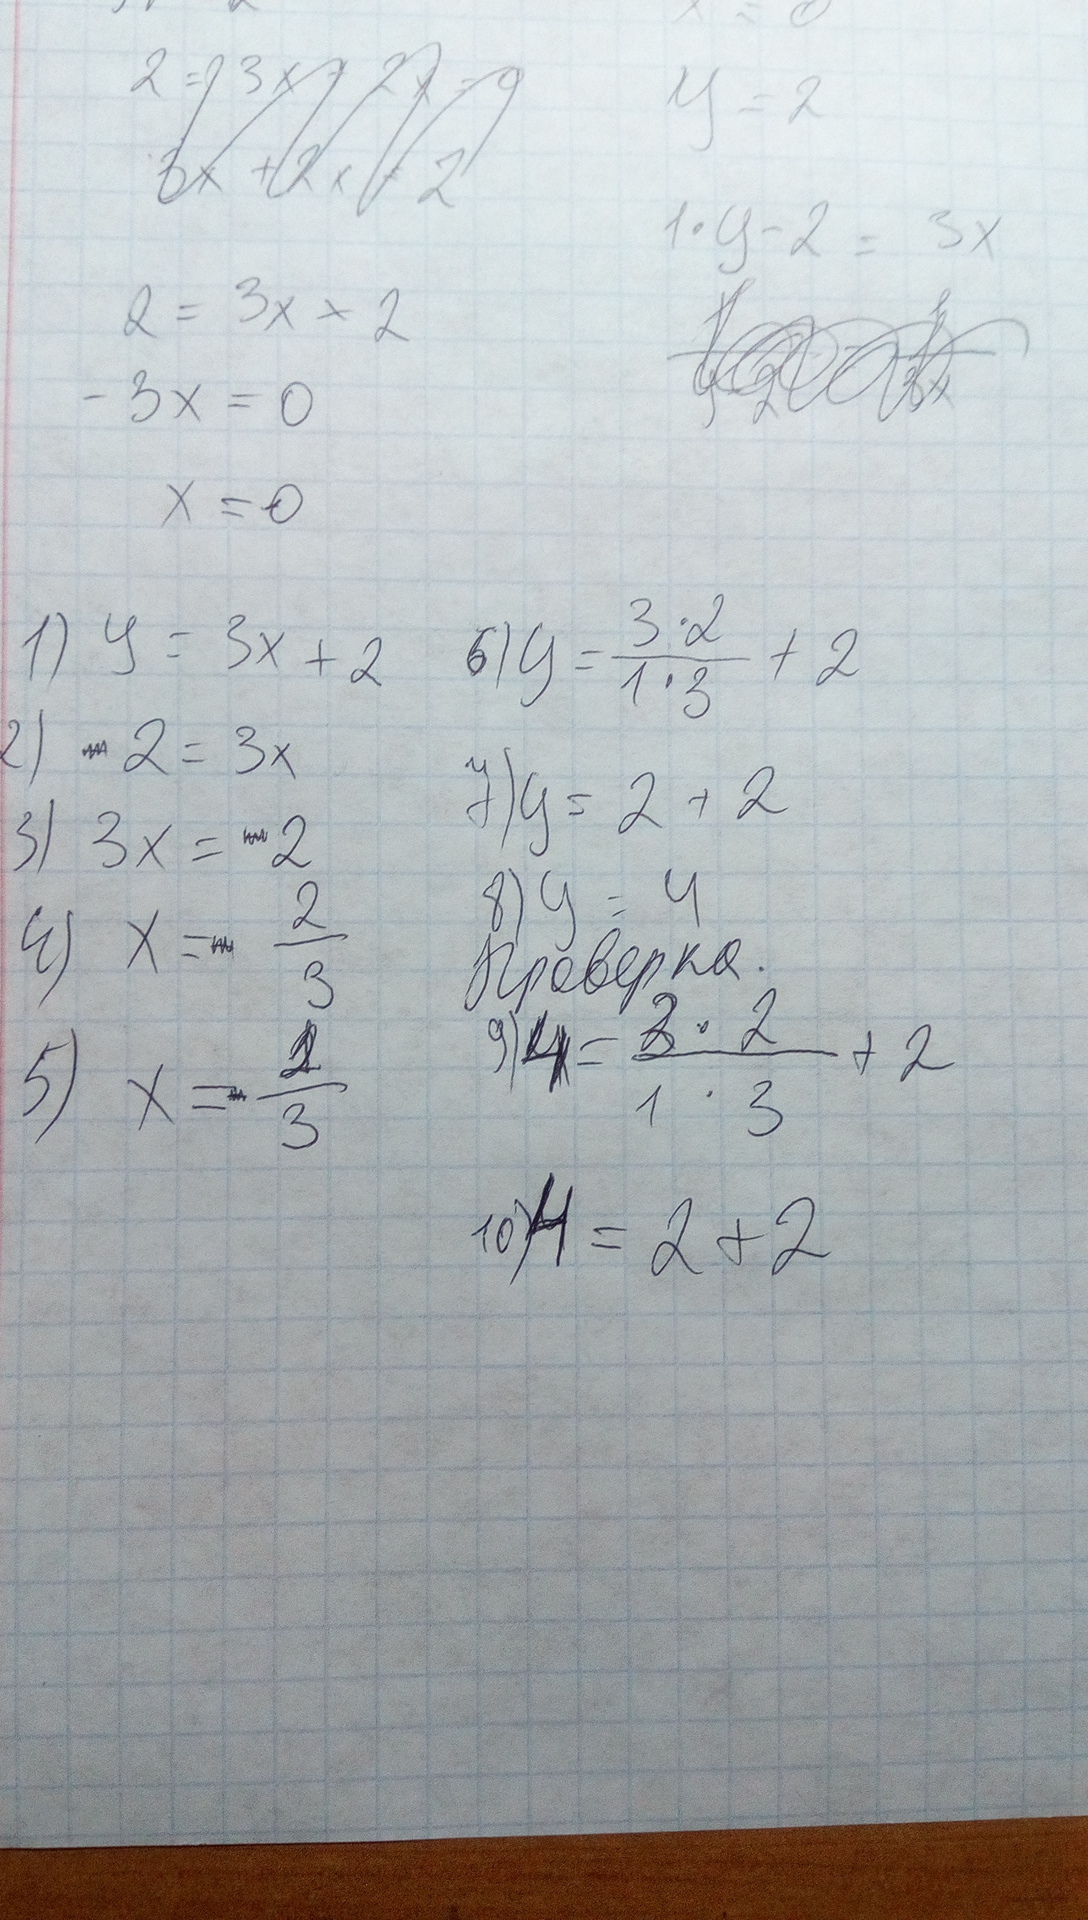 x = 0
2 = 3x - 2x = 0
3x + 2x = 2
2 = 3x + 2
-3x = 0
x = 0
y = 2
1·y - 2 = 3x
1) y = 3x + 2
2) 2 = 3x
3) 3x = 2
4) x = 2/3
5) x = 2/3
6) y = 3·2/1·3 + 2
7) y = 2 + 2
8) y = 4
Проверка.
9) 4 = 3·2/1·3 + 2
10) 4 = 2 + 2